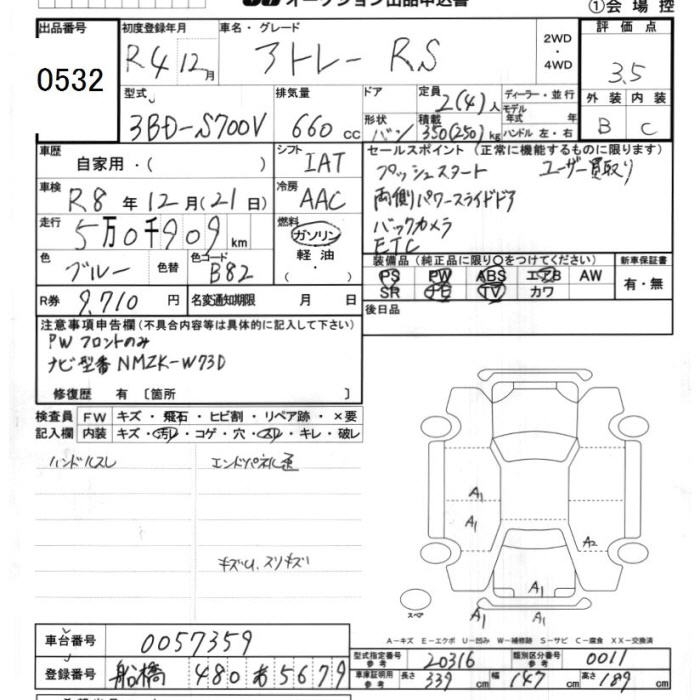 オークション出品申込書
①会場控
出品番号
0532
初度登録年月
R4 12月
車名・グレード
アトレー RS
2WD
・
4WD
評価点
3.5
外装 内装
B C
型式
3BD-S700V
排気量
660 cc
ドア
定員
2(4) 人
形状
バン
積載
350(250) kg
ディーラー・並行
モデル年式 年式
ハンドル 左・右
車歴
自家用・( )
シフト
IAT
車検
R8 年 12 月(21 日)
冷房
AAC
走行
5万0千909 km
燃料
ガソリン
軽油
・
( )
色
ブルー
色替
色コード
B82
R券
9,710 円
名変通知期限 月 日
セールスポイント(正常に機能するものに限ります)
プッシュスタート ユーザー買取り
両側パワースライドドア
バックカメラ
ETC
装備品(純正品に限り○をつけてください)
PS PW ABS エアB AW
SR ナビ TV カワ
新車保証書
有・無
後日品
注意事項申告欄(不具合内容等は具体的に記入して下さい)
PW フロントのみ
ナビ型番 NMZK-W73D
修復歴 有〔箇所 〕
検査員 FW キズ・飛石・ヒビ割・リペア跡・×要
記入欄 内装 キズ・汚れ・コゲ・穴・スレ・キレ・破レ
ハンドルスレ
エンドパネル
キズU、スリキズ
A1
A1
A2
A1
A1
スペア
A-キズ E-エクボ U-凹み W-補修跡 S-サビ C-腐食 XX-交換済
車台番号
0057359
登録番号
船橋 480 あ 5679
型式指定番号
参考
20316
類別区分番号
参考
0011
車庫証明用
参考
長さ 339 cm 幅 147 cm 高さ 189 cm